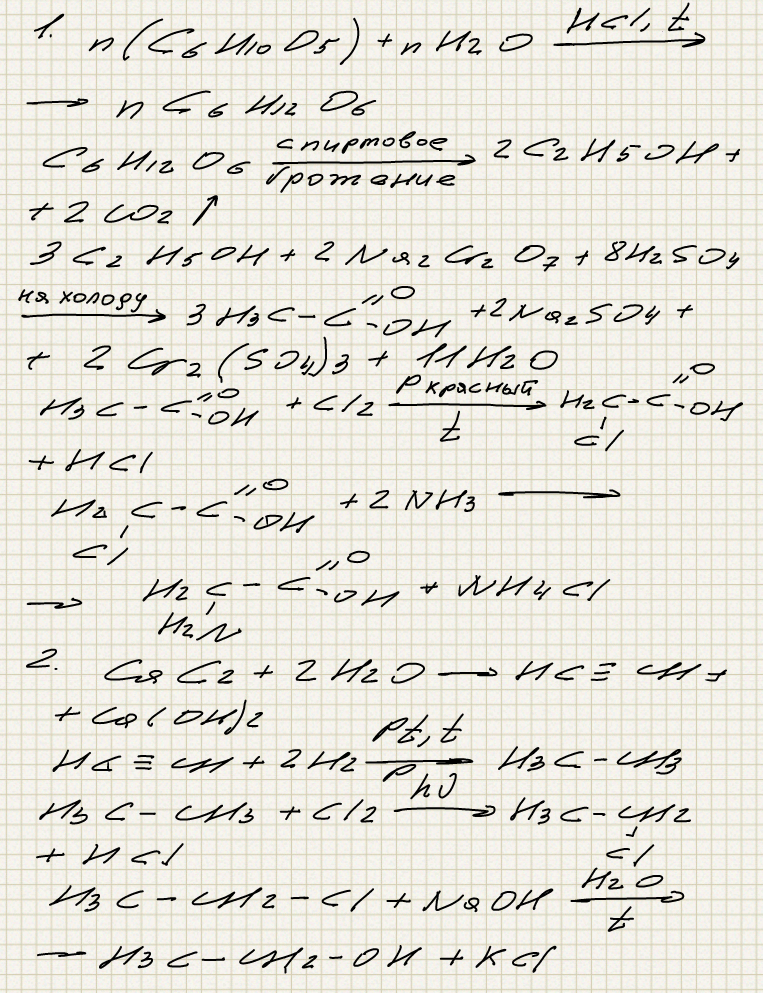 1. n(C6H10O5) + nH2O HCl, t →
→ n C6H12O6
C6H12O6 спиртовое брожение → 2C2H5OH +
+ 2CO2↑
3C2H5OH + 2Na2Cr2O7 + 8H2SO4
на холоду → 3H3C-C=O-OH + 2Na2SO4 +
+ 2Cr2(SO4)3 + 11H2O
H3C-C=O-OH + Cl2 P красный t → H2C-C=O-OH Cl
+ HCl
H2C-C=O-OH Cl + 2NH3 →
→ H2C-C=O-OH H2N + NH4Cl
2. CaC2 + 2H2O → HC≡CH +
+ Ca(OH)2
HC≡CH + 2H2 Pt, t P → H3C-CH3
H3C-CH3 + Cl2 hν → H3C-CH2 Cl
+ HCl
H3C-CH2-Cl + NaOH H2O t →
— H3C-CH2-OH + KCl